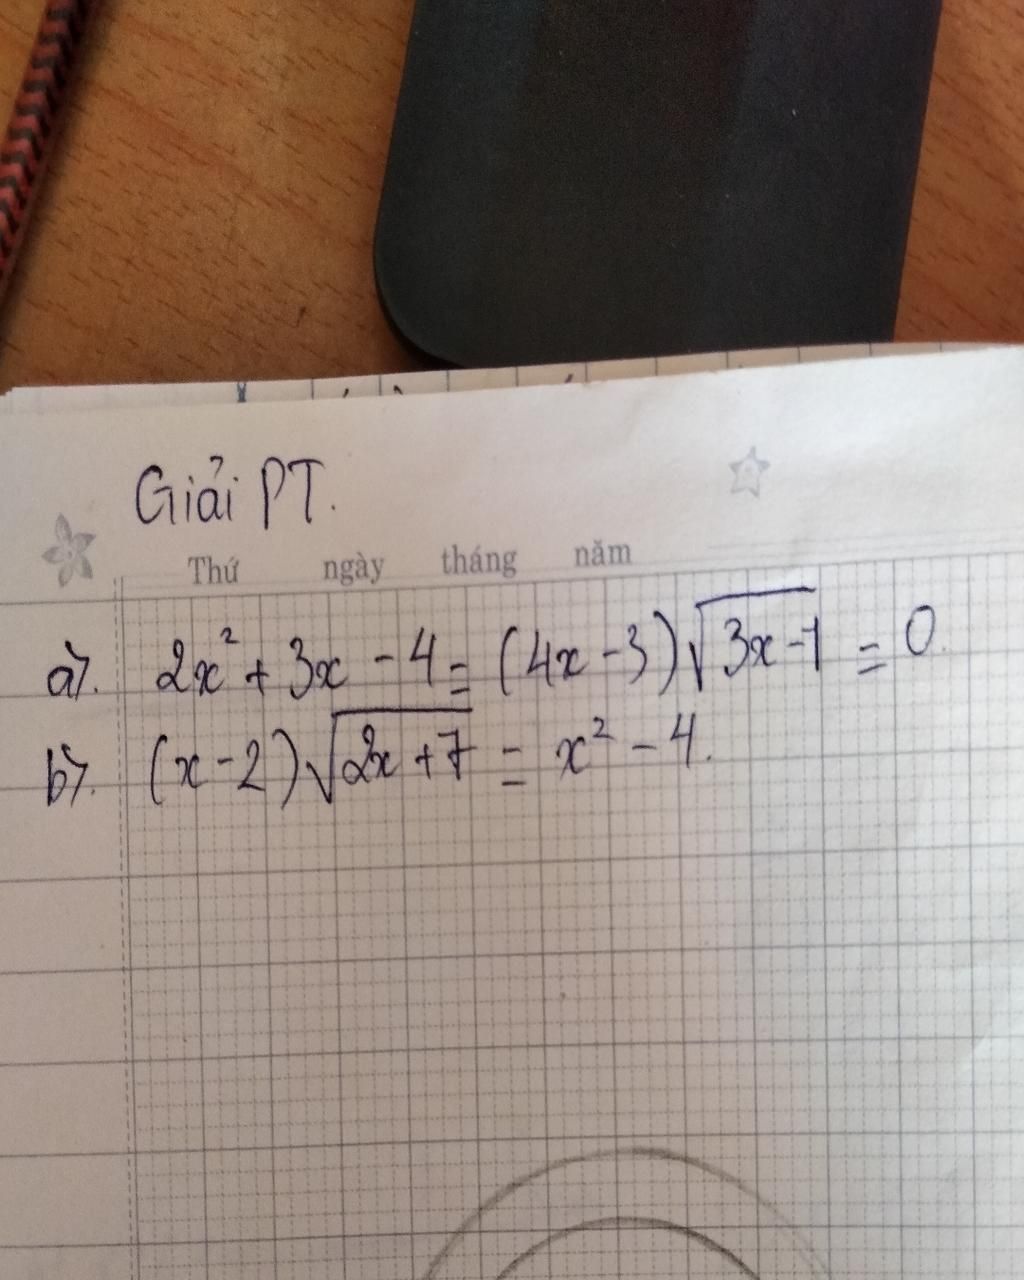 Giải PT.
Thứ ngày tháng năm
a). 2x² + 3x - 4 = (4x - 3)√(3x - 1) = 0.
b). (x - 2)√(2x + 7) = x² - 4.